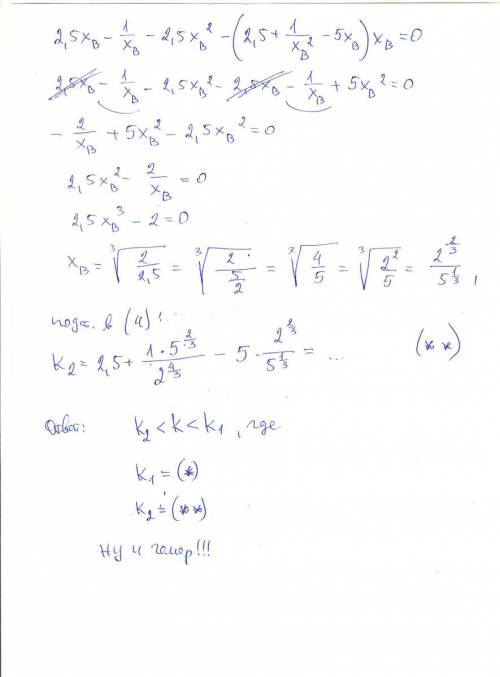 2,5x_B - 1/x_B - 2,5x_B² - (2,5 + 1/x_B² - 5x_B) x_B = 0
2,5x_B - 1/x_B - 2,5x_B² - 2,5x_B - 1/x_B + 5x_B² = 0
- 2/x_B + 5x_B² - 2,5x_B² = 0
2,5x_B² - 2/x_B = 0
2,5x_B³ - 2 = 0
x_B = ∛(2/2,5) = ∛(2/(5/2)) = ∛(4/5) = ∛(2²/5) = 2^(2/3)/5^(1/3),
подст. в (4):
K₂ = 2,5 + 1·5^(2/3)/2^(4/3) - 5 · 2^(2/3)/5^(1/3) = ... (**)
Ответ: K₂ < K < K₁, где
K₁ = (*)
K₂ = (**)
Ну и !!!